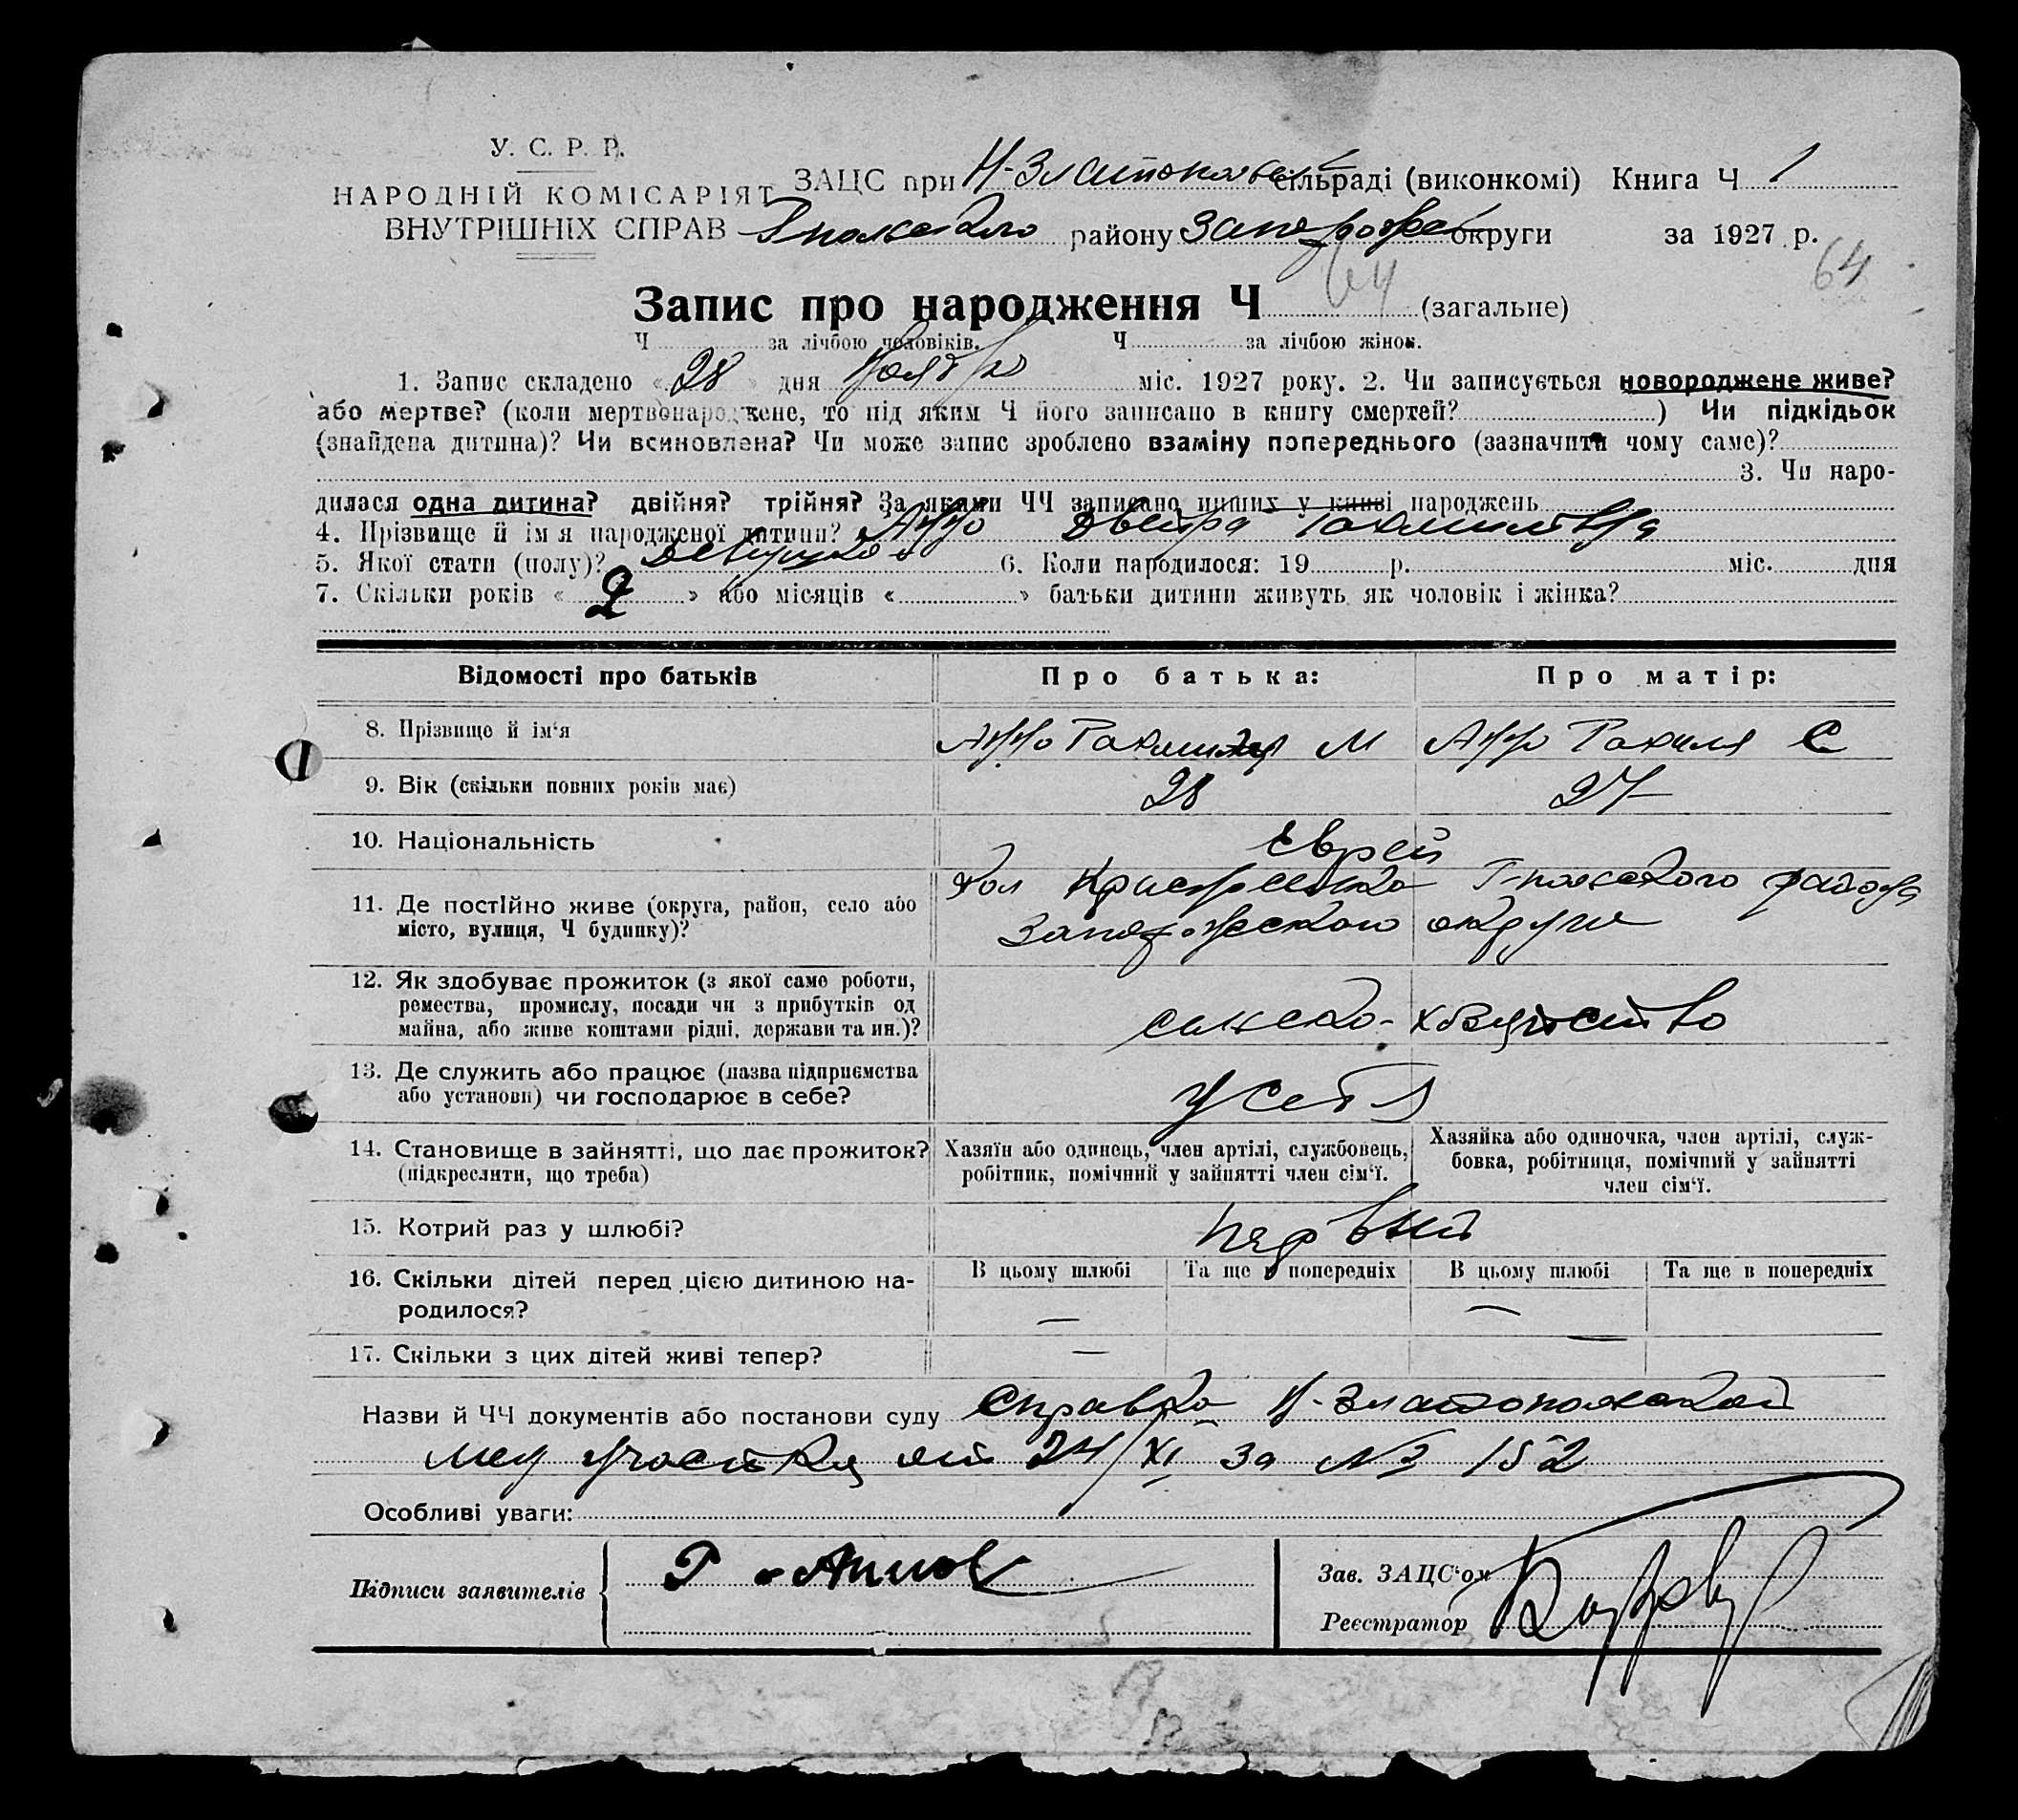 У. С. Р. Р.
НАРОДНІЙ КОМІСАРІЯТ
ВНУТРІШНІХ СПРАВ
ЗАЦС при Н-Златопольск сільраді (виконкомі) Книга Ч 1
району Запорож округи за 1927 р.
64
Запис про народження Ч 64 (загальне)
Ч за лічбою чоловіків. Ч за лічбою жінок.
1. Запис складено « 28 » дня Ноября міс. 1927 року. 2. Чи записується новороджене живе?
або мертве? (коли мертвонароджене, то під яким Ч його записано в книгу смертей? ) Чи підкідьок
(знайдена дитина)? Чи всиновлена? Чи може запис зроблено взаміну попереднього (зазначити чому саме)?
3. Чи наро-
дилася одна дитина? двійня? трійня? За якими ЧЧ записано инших у книзі народжень
4. Прізвище й ім'я народженої дитини? Двейра
5. Якої стати (полу)? девушка 6. Коли народилося: 19 р. міс. дня
7. Скільки років « 2 » або місяців « » батьки дитини живуть як чоловік і жінка?
Відомості про батьків Про батька: Про матір:
8. Прізвище й ім'я М Рахиля С
9. Вік (скільки повних років має) 28 27
10. Національність Еврей
11. Де постійно живе (округа, район, село або
місто, вулиця, Ч будинку)?
кол района
Запорожского округи
12. Як здобуває прожиток (з якої само роботи,
ремества, промислу, посади чи з прибутків од
майна, або живе коштами рідні, держави та ин.)?
сельско-хозяйство
13. Де служить або працює (назва підприємства
або установи) чи господарює в себе?
у себя
14. Становище в зайнятті, що дає прожиток?
(підкреслити, що треба)
Хазяїн або одинець, член артілі, службовець,
робітник, помічний у зайнятті член сім'ї.
Хазяйка або одиночка, член артілі, служ-
бовка, робітниця, помічний у зайнятті
член сім'ї.
15. Котрий раз у шлюбі? первый
16. Скільки дітей перед цією дитиною на-
родилося?
В цьому шлюбі Та ще в попередніх В цьому шлюбі Та ще в попередніх
— —
17. Скільки з цих дітей живі тепер? — —
Назви й ЧЧ документів або постанови суду Справка Н-Златопольской
мед участка от 24/XI за № 152
Особливі уваги:
Підписи заявителів
Зав. ЗАЦС'ом
Реєстратор